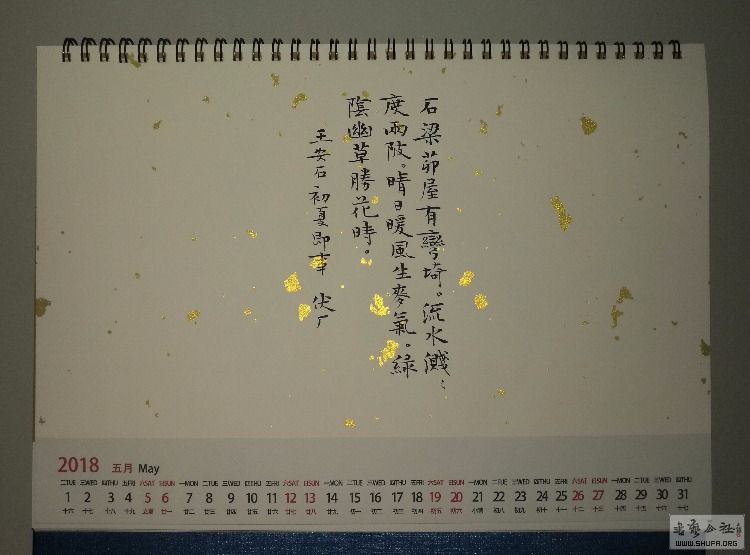 石梁茆屋有彎埼。流水濺：
度兩陂。晴日暖風生麥氣。綠
陰幽草勝花時。
王安石初夏即事 伏厂
2018 五月 May
二TUE 三WED 四THU 五FRI 六SAT 日SUN 一MON 二TUE 三WED 四THU 五FRI 六SAT 日SUN 一MON 二TUE 三WED 四THU 五FRI 六SAT 日SUN 一MON 二TUE 三WED 四THU 五FRI 六SAT 日SUN 一MON 二TUE 三WED 四THU
1 2 3 4 5 6 7 8 9 10 11 12 13 14 15 16 17 18 19 20 21 22 23 24 25 26 27 28 29 30 31
十六 十七 十八 十九 立夏 廿一 廿二 廿三 廿四 廿五 廿六 廿七 廿八 廿九 初一 初二 初三 初四 初五 初六 小满 初八 初九 初十 十一 十二 十三 十四 十五 十六 十七
WWW.SHUFA.ORG